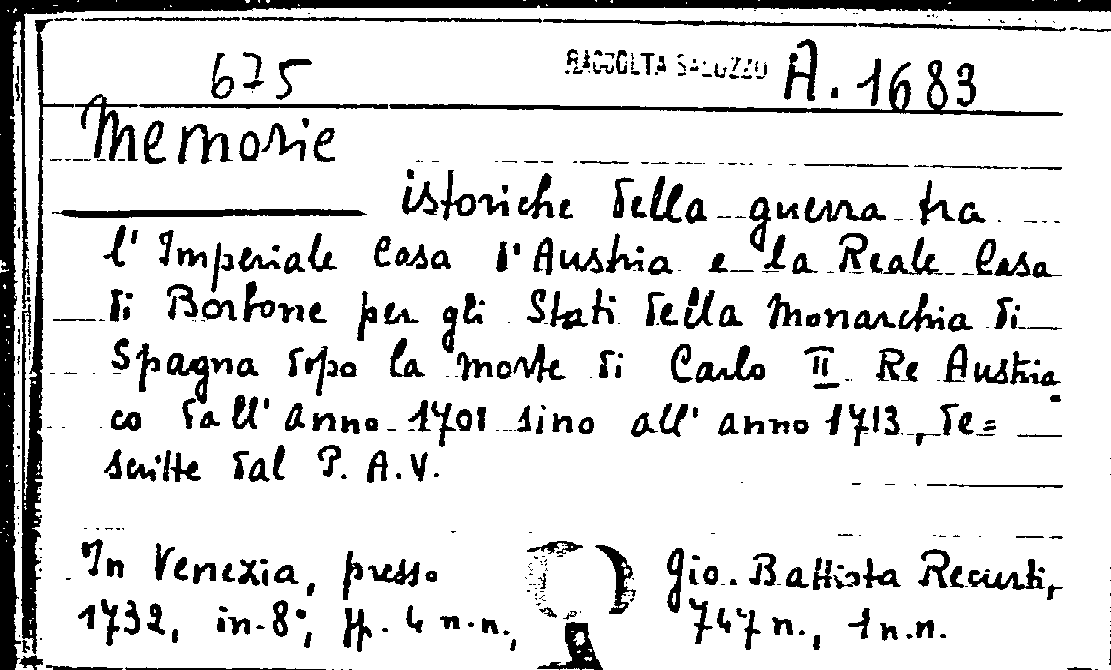 675 RACCOLTA SALUZZO A. 1683
Memorie
istoriche della guerra tra
l'Imperiale Casa d'Austria e la Reale Casa
di Borbone per gli Stati della Monarchia di
Spagna dopo la morte di Carlo II Re Austria
co dall'anno 1701 sino all'anno 1713, de=
scritte dal P. A. V.
In Venezia, presso Gio. Battista Recurti,
1732, in-8°, pp. 4 n.n., 747 n., 1 n.n.